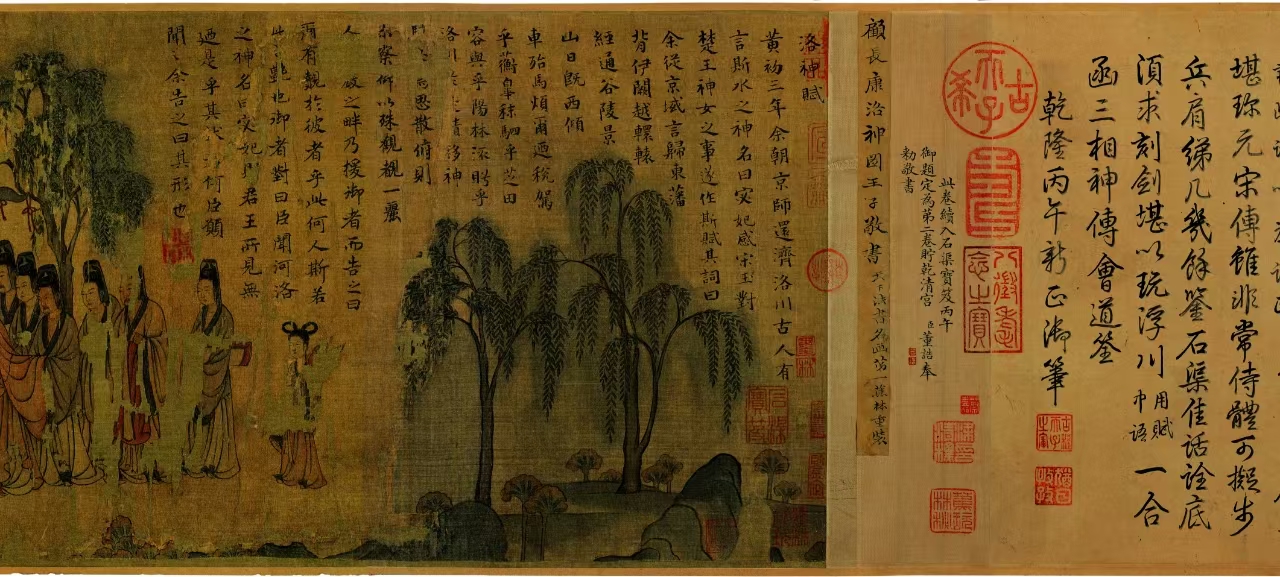 堪珍元宋傳雖非常侍體可擬步
兵肩綈几幾餘鑒石渠佳話詮底
須求刻劍堪以玩浮川用賦中語一合
函三相神傳會道筌
乾隆丙午新正御筆
古稀天子
壽
八徵耄念之寶
此卷續入石渠寶笈丙午
御題定為第二卷貯乾清宮 臣董誥奉
勅敬書
顧長康洛神圖王子敬書 天下法書名畫第一蕉林重裝
洛神賦
黃初三年余朝京師還濟洛川古人有
言斯水之神名曰宓妃感宋玉對
楚王神女之事遂作斯賦其詞曰
余從京域言歸東藩
背伊闕越轘轅
經通谷陵景
山日既西傾
車殆馬煩爾迺稅駕
乎蘅皋秣駟乎芝田
容與乎陽林流眄乎
洛川於是精移神
思散俯則
未察仰以殊觀覩一麗
人 之畔乃援御者而告之曰
爾有覿於彼者乎此何人斯若
此之艷也御者對曰臣聞河洛
之神名曰宓妃則君王所見無
迺是乎其狀若何臣願
聞之余告之曰其形也